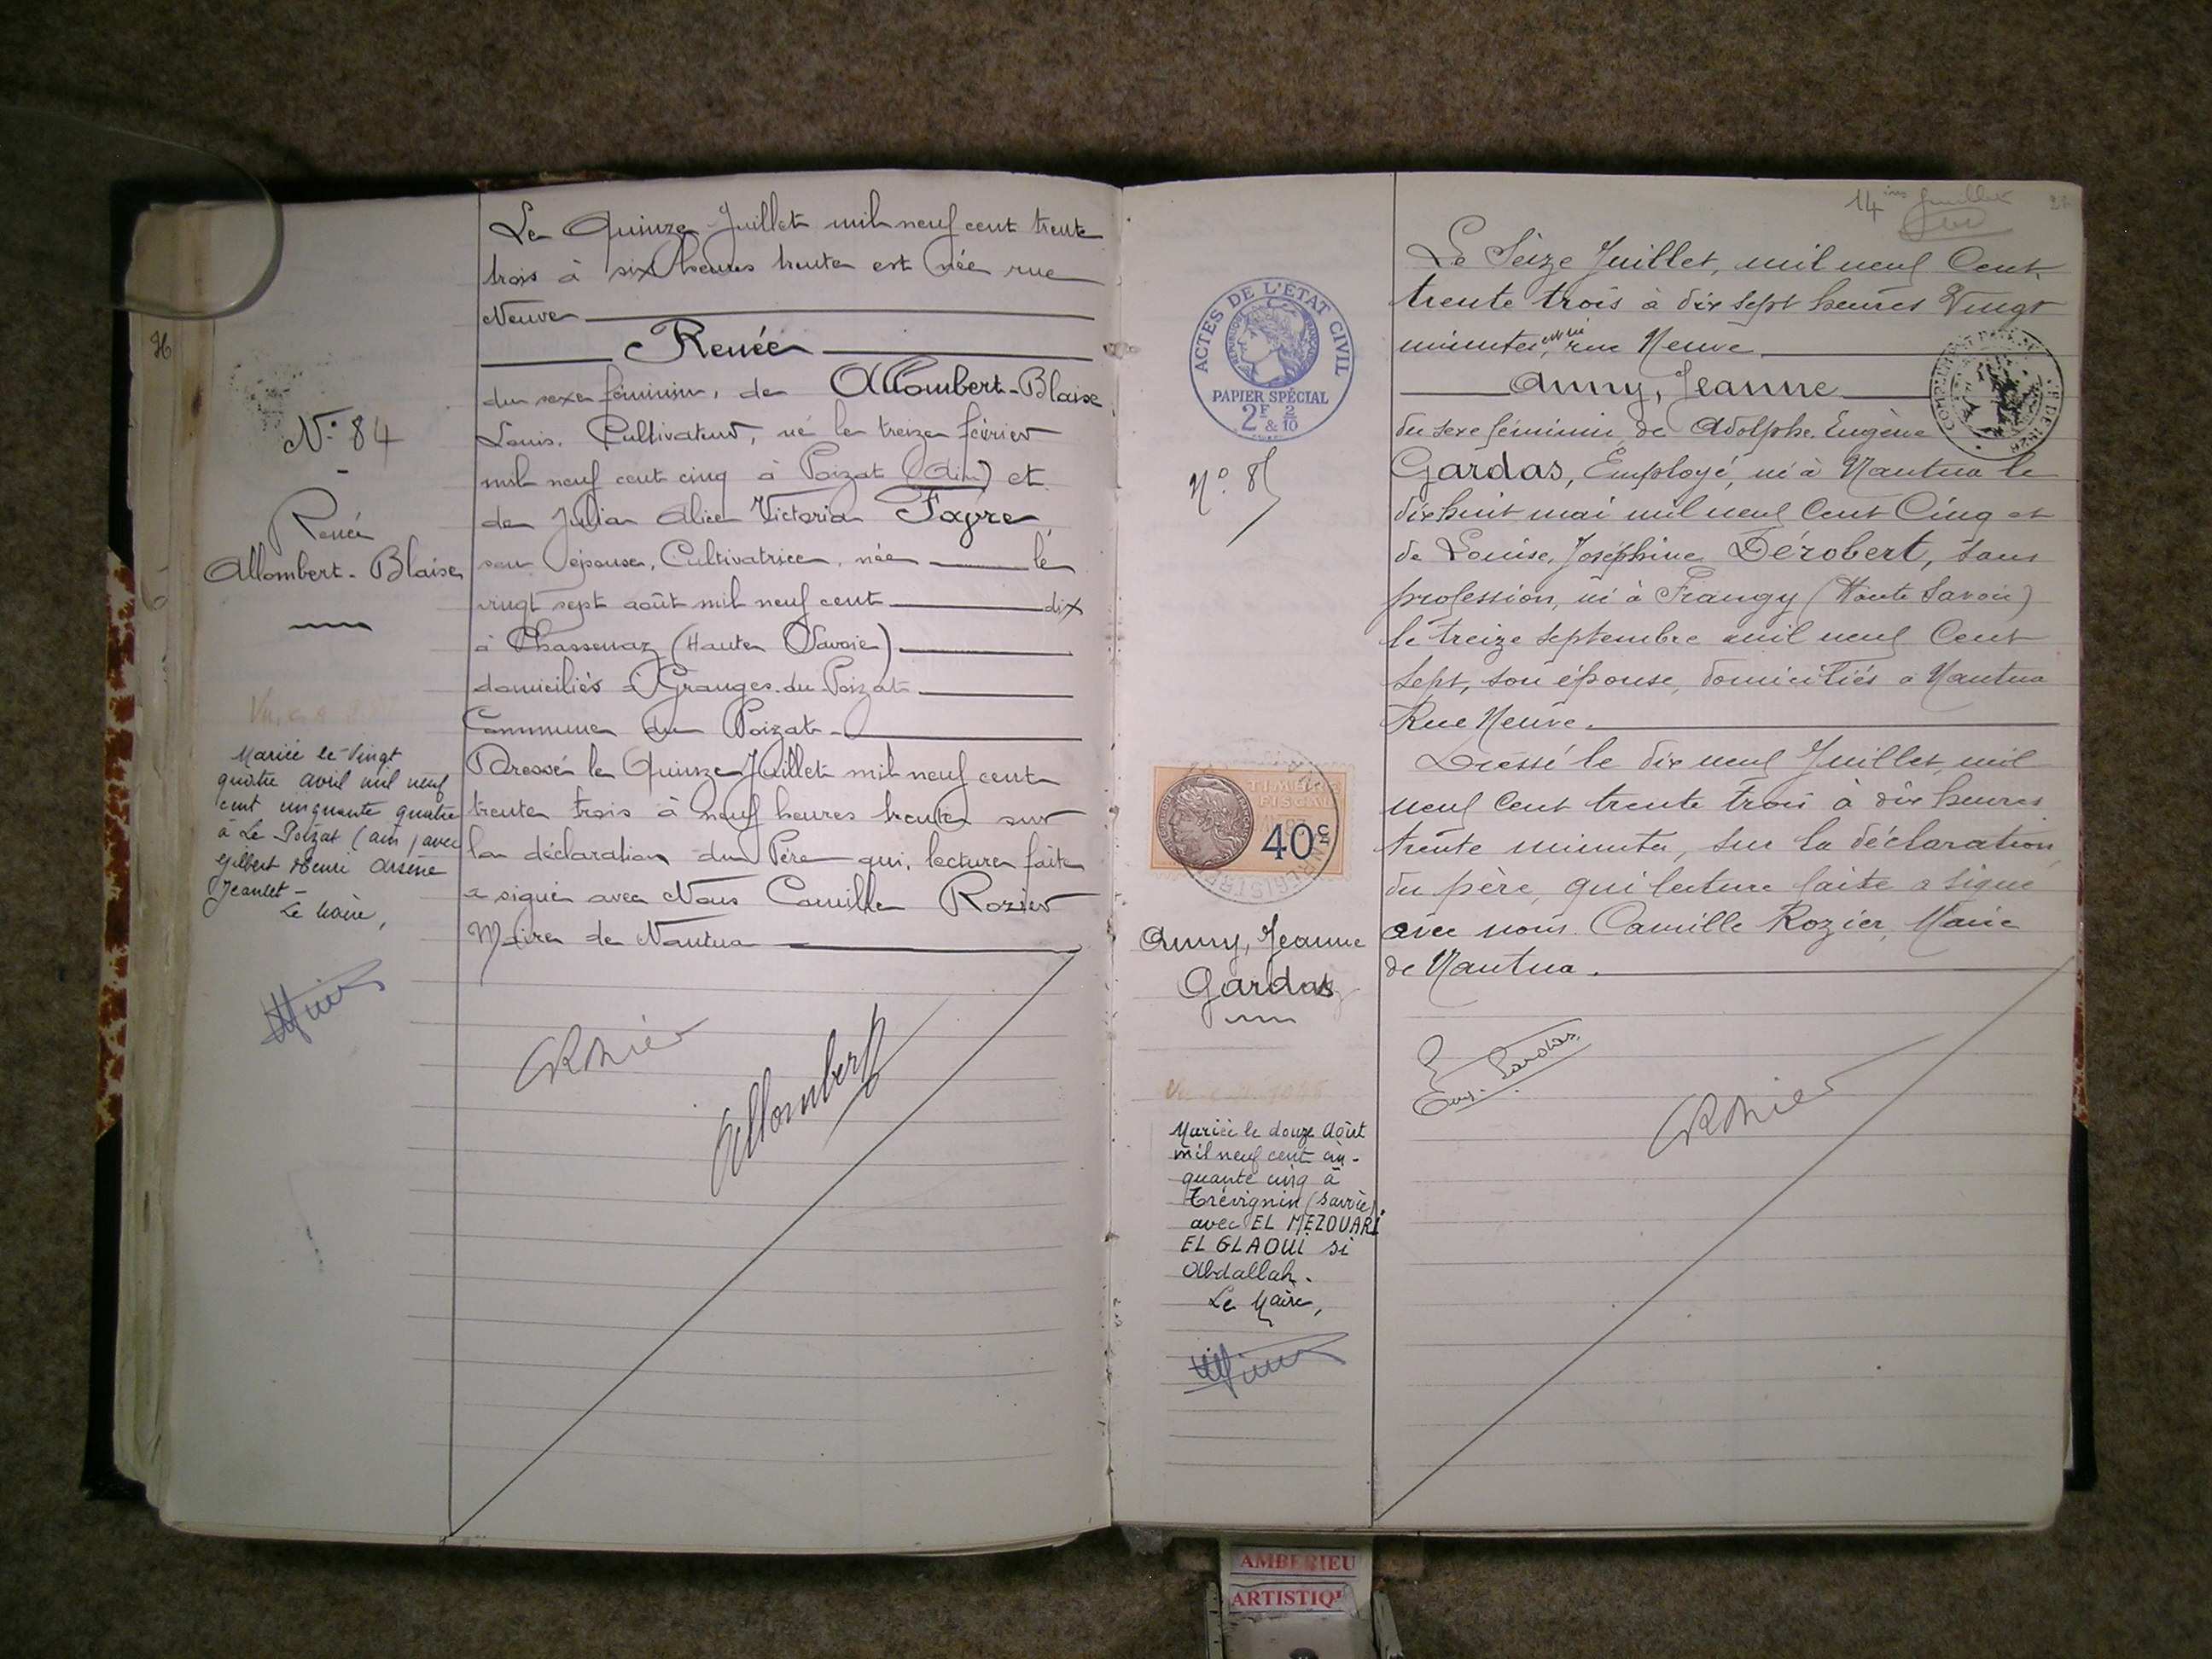 36
N° 84
Renée
Allombert-Blaise
Mariée le Vingt
quatre avril mil neuf
cent cinquante quatre
à Le Poizat (ain) avec
Gilbert Henri Arsène
Jeantet -
Le Maire,
Le Quinze Juillet mil neuf cent trente
trois à six heures trente est née rue
Neuve
Renée
du sexe féminin, de Allombert-Blaise
Louis, Cultivateur, né le treize février
mil neuf cent cinq à Poizat (Ain) et
de Julia Alice Victoria Favre,
son épouse, Cultivatrice, née le
vingt sept août mil neuf cent dix
à Chassenaz (Haute Savoie)
domiciliés à Granges-du-Poizat
Commune du Poizat
Dressé le Quinze Juillet mil neuf cent
trente trois à neuf heures trente sur
la déclaration du Père qui, lecture faite
a signé avec Nous Camille Rozier
Maire de Nantua
CRozier
Allombert
ACTES DE L'ÉTAT CIVIL
RÉPUBLIQUE FRANÇAISE
PAPIER SPÉCIAL
2F & 2/10
N° 85
TIMBRE
FISCAL
40c
Anny, Jeanne
Gardas
Mariée le douze Août
mil neuf cent cin-
quante cinq à
Trévignin (Savoie)
avec EL MEZOUARI
EL GLAOUI si
Abdallah.
Le Maire,
14 Juillet
Le Seize Juillet, mil neuf Cent
trente trois à dix sept heures Vingt
minutes, est née rue Neuve
Anny, Jeanne
du sexe féminin de Adolphe, Eugène
Gardas, Employé, né à Nantua le
dix huit mai mil neuf Cent Cinq et
de Louise, Joséphine Dérobert, sans
profession, né à Frangy (Haute Savoie)
le treize septembre mil neuf Cent
sept, son épouse, domiciliés à Nantua
Rue Neuve.
Dressé le dix neuf Juillet, mil
neuf Cent trente trois à dix heures
trente minutes, sur la déclaration
du père, qui lecture faite a signé
avec nous Camille Rozier, Maire
de Nantua.
Eug. Gardas
CRozier
AMBERIEU
ARTISTIQ